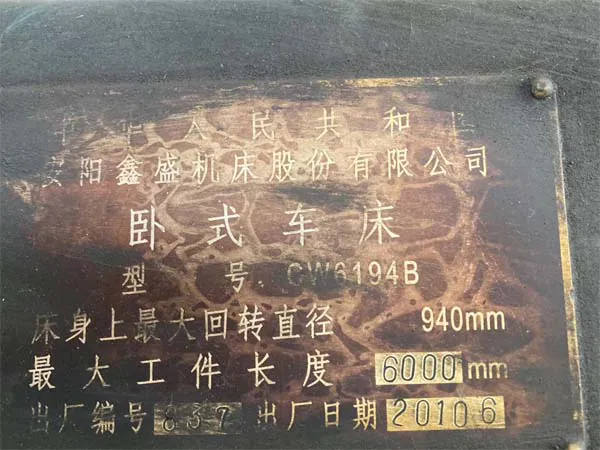 中华人民共和国
安阳鑫盛机床股份有限公司
卧式车床
型号 CW6194B
床身上最大回转直径 940mm
最大工件长度 6000mm
出厂编号 837 出厂日期 20106